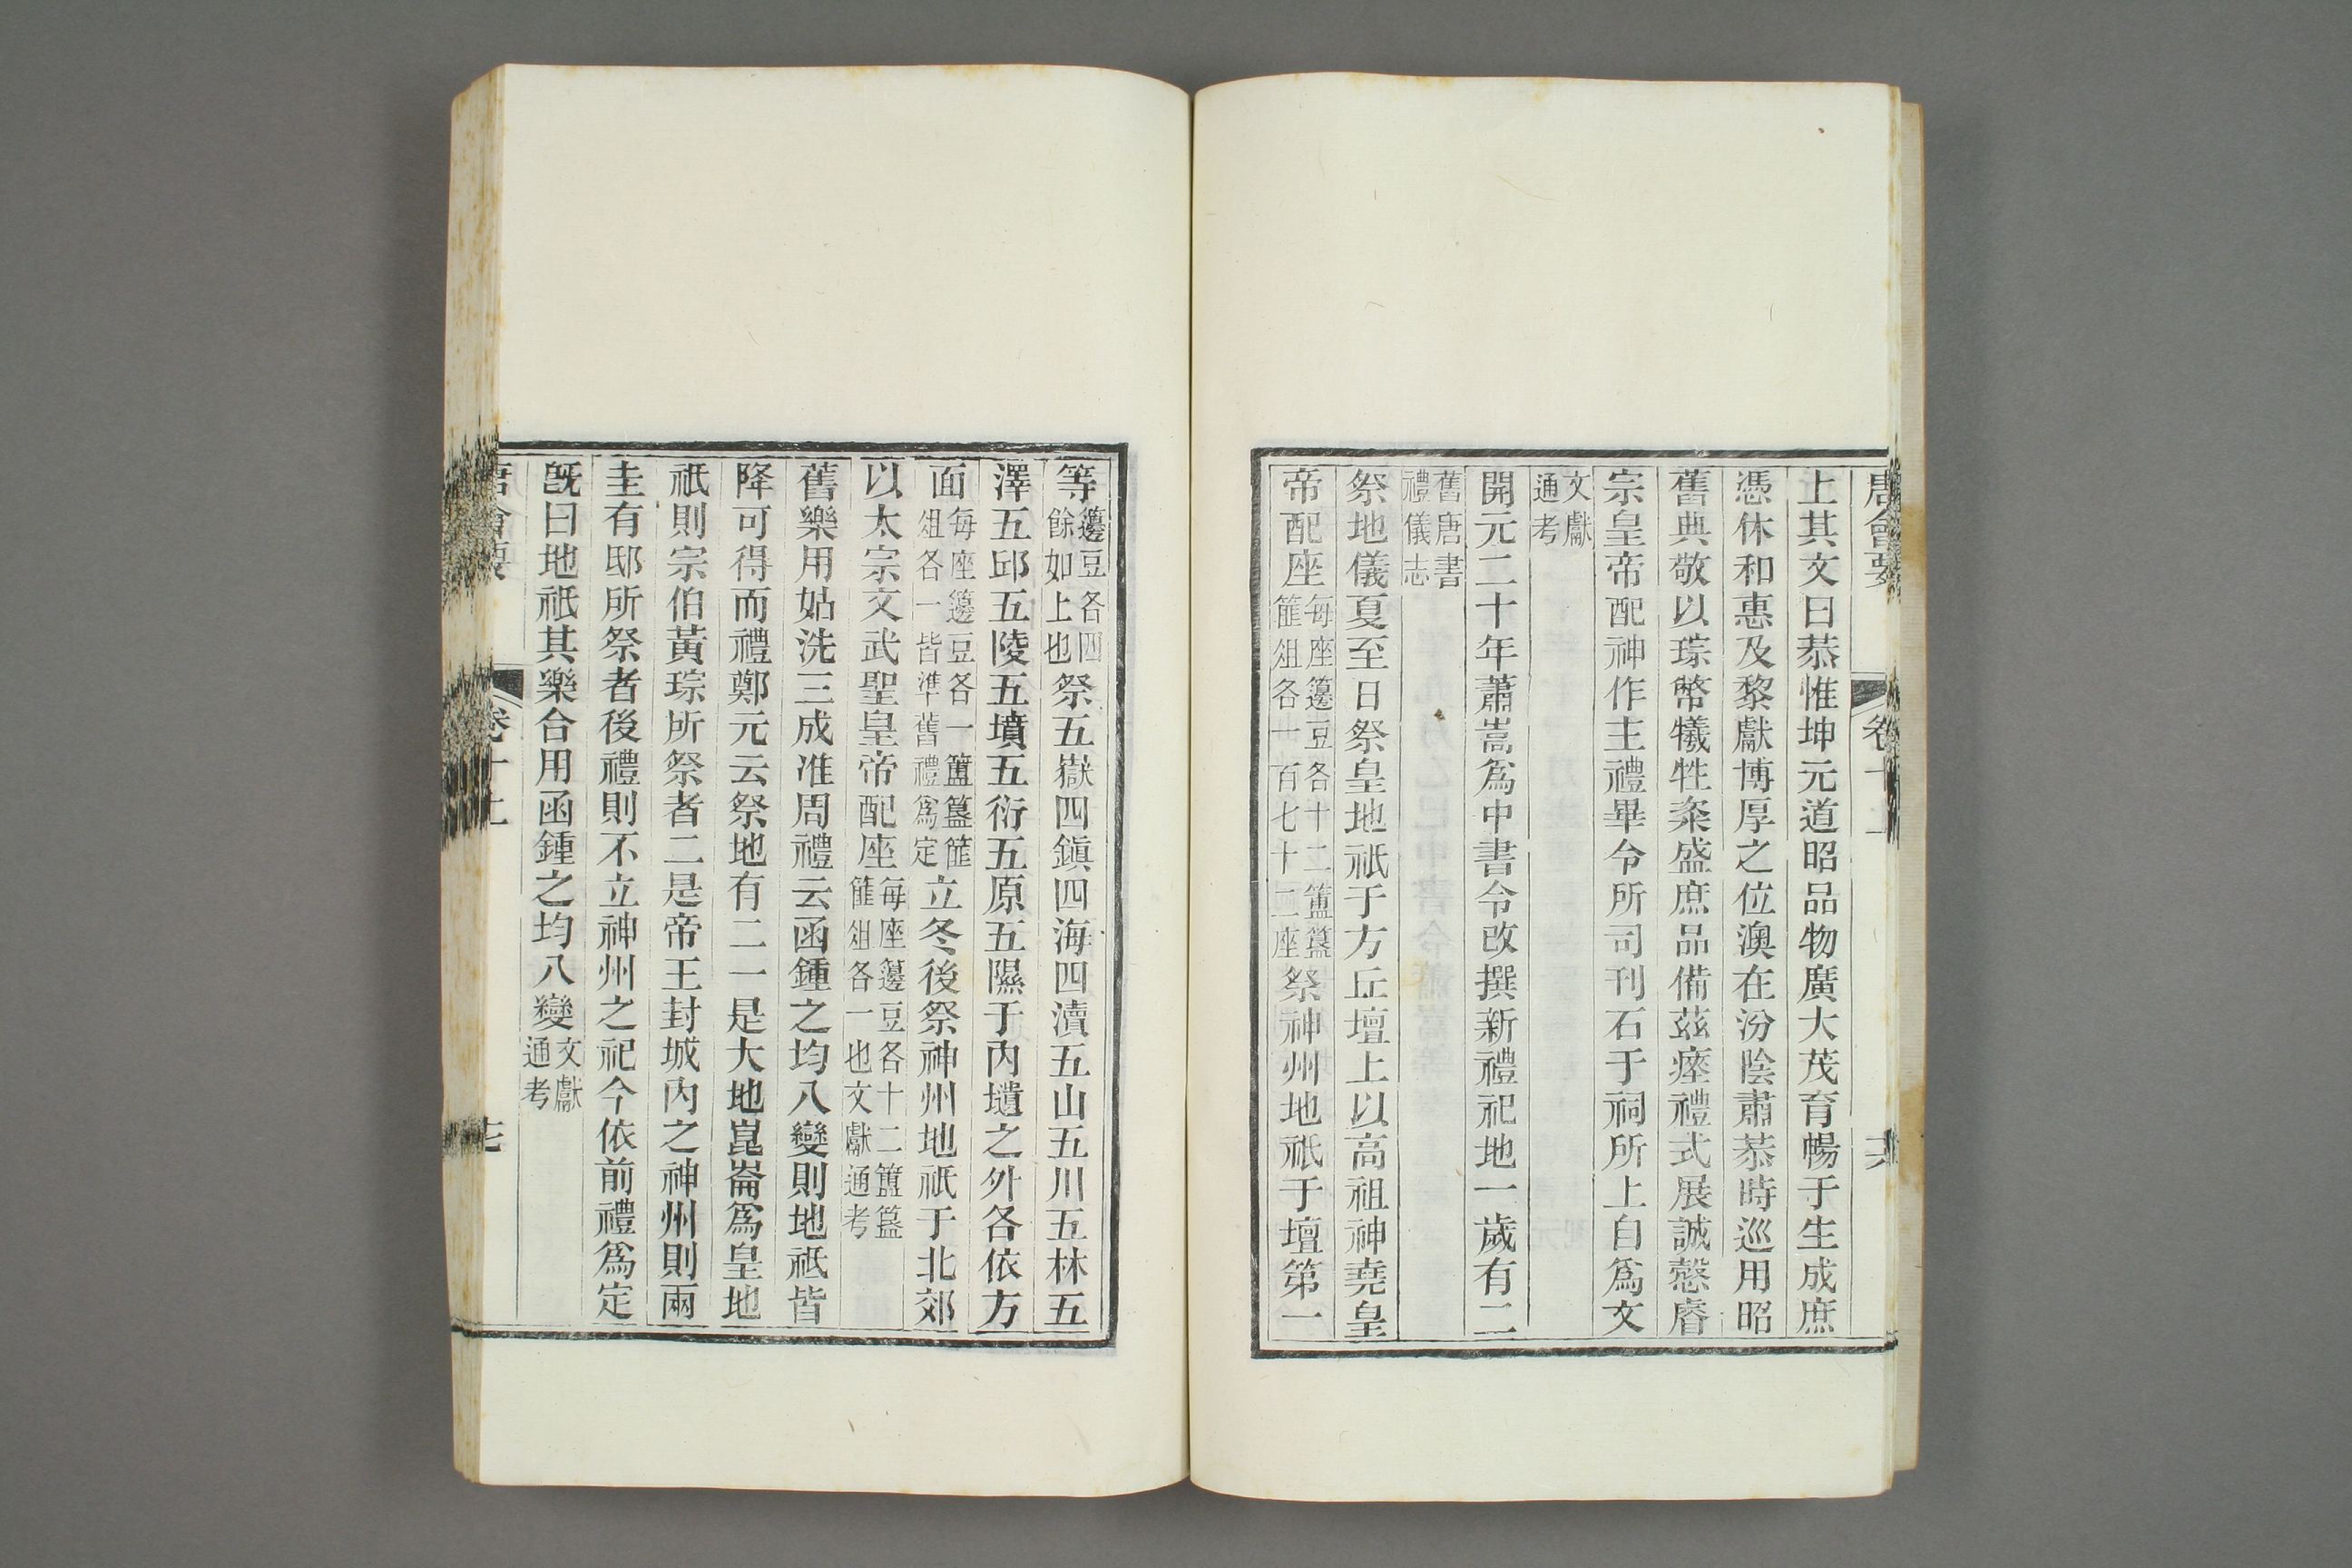 唐會要 卷十上
上其文曰恭惟坤元道昭品物廣大茂育暢于生成庶
憑休和惠及黎獻博厚之位澳在汾陰肅恭時巡用昭
舊典敬以琮幣犧牲粢盛庶品備茲瘞禮式展誠慤睿
宗皇帝配神作主禮畢令所司刊石于祠所上自爲文
文獻通考
開元二十年蕭嵩爲中書令改撰新禮祀地一歲有二
舊唐書禮儀志
祭地儀夏至日祭皇地祇于方丘壇上以高祖神堯皇
帝配座每座籩豆各十二簠簋䉛俎各一百七十二座祭神州地祇于壇第一
等籩豆各四餘如上也祭五嶽四鎮四海四瀆五山五川五林五
澤五邱五陵五墳五衍五原五隰于內壝之外各依方
面每座籩豆各一簠簋䉛俎各一皆準舊禮爲定立冬後祭神州地祇于北郊
以太宗文武聖皇帝配座每座籩豆各十二簠簋䉛俎各一也文獻通考
舊樂用姑洗三成准周禮云函鍾之均八變則地祇皆
降可得而禮鄭元云祭地有二一是大地崑崙爲皇地
祇則宗伯黃琮所祭者二是帝王封城內之神州則兩
圭有邸所祭者後禮則不立神州之祀今依前禮爲定
旣曰地祇其樂合用函鍾之均八變文獻通考
唐會要 卷十上 十七